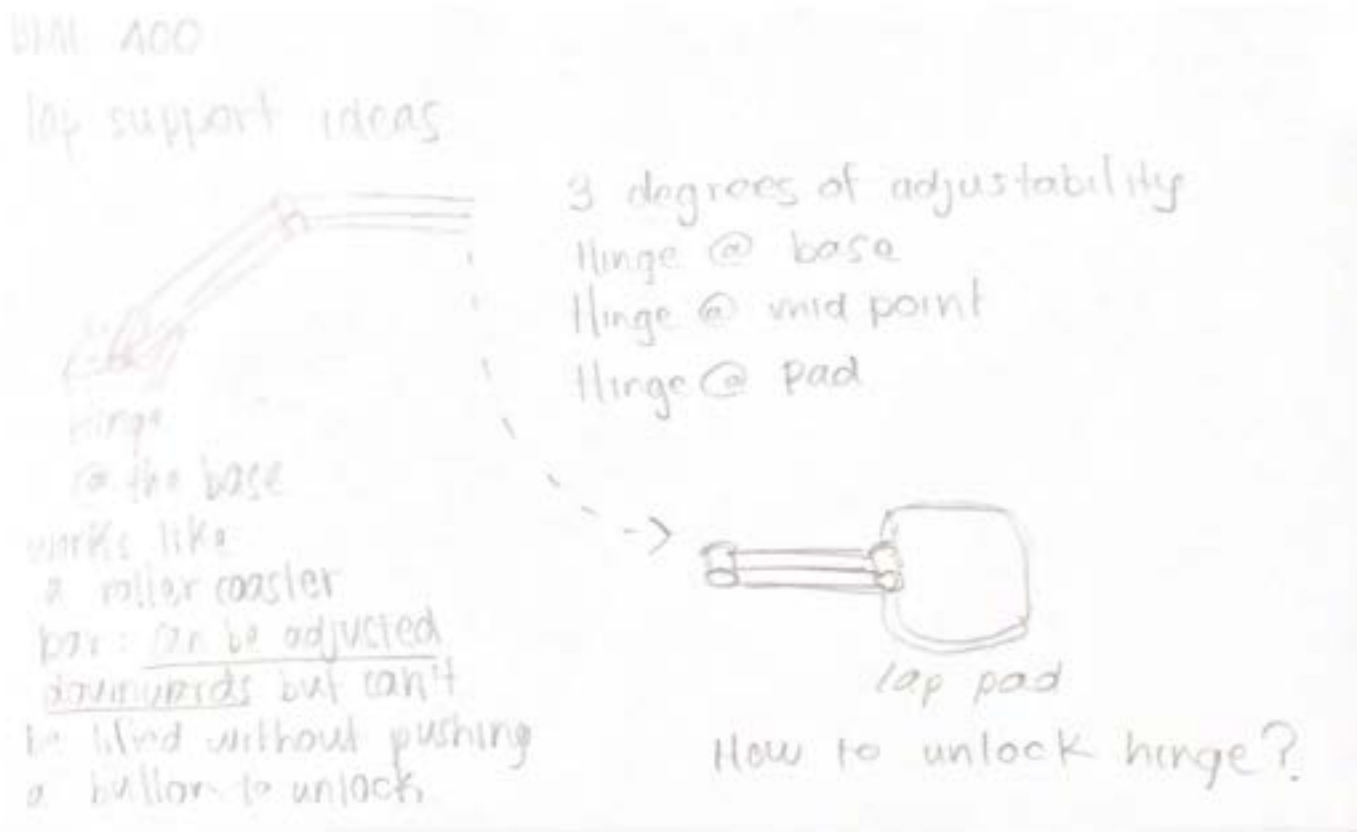 400
lap support ideas
3 degrees of adjustability
Hinge @ base
Hinge @ mid point
Hinge @ pad
hinge
@ the base
works like
a roller coaster
bar: can be adjusted
downwards but can't
be lifted without pushing
a button to unlock
lap pad
How to unlock hinge?